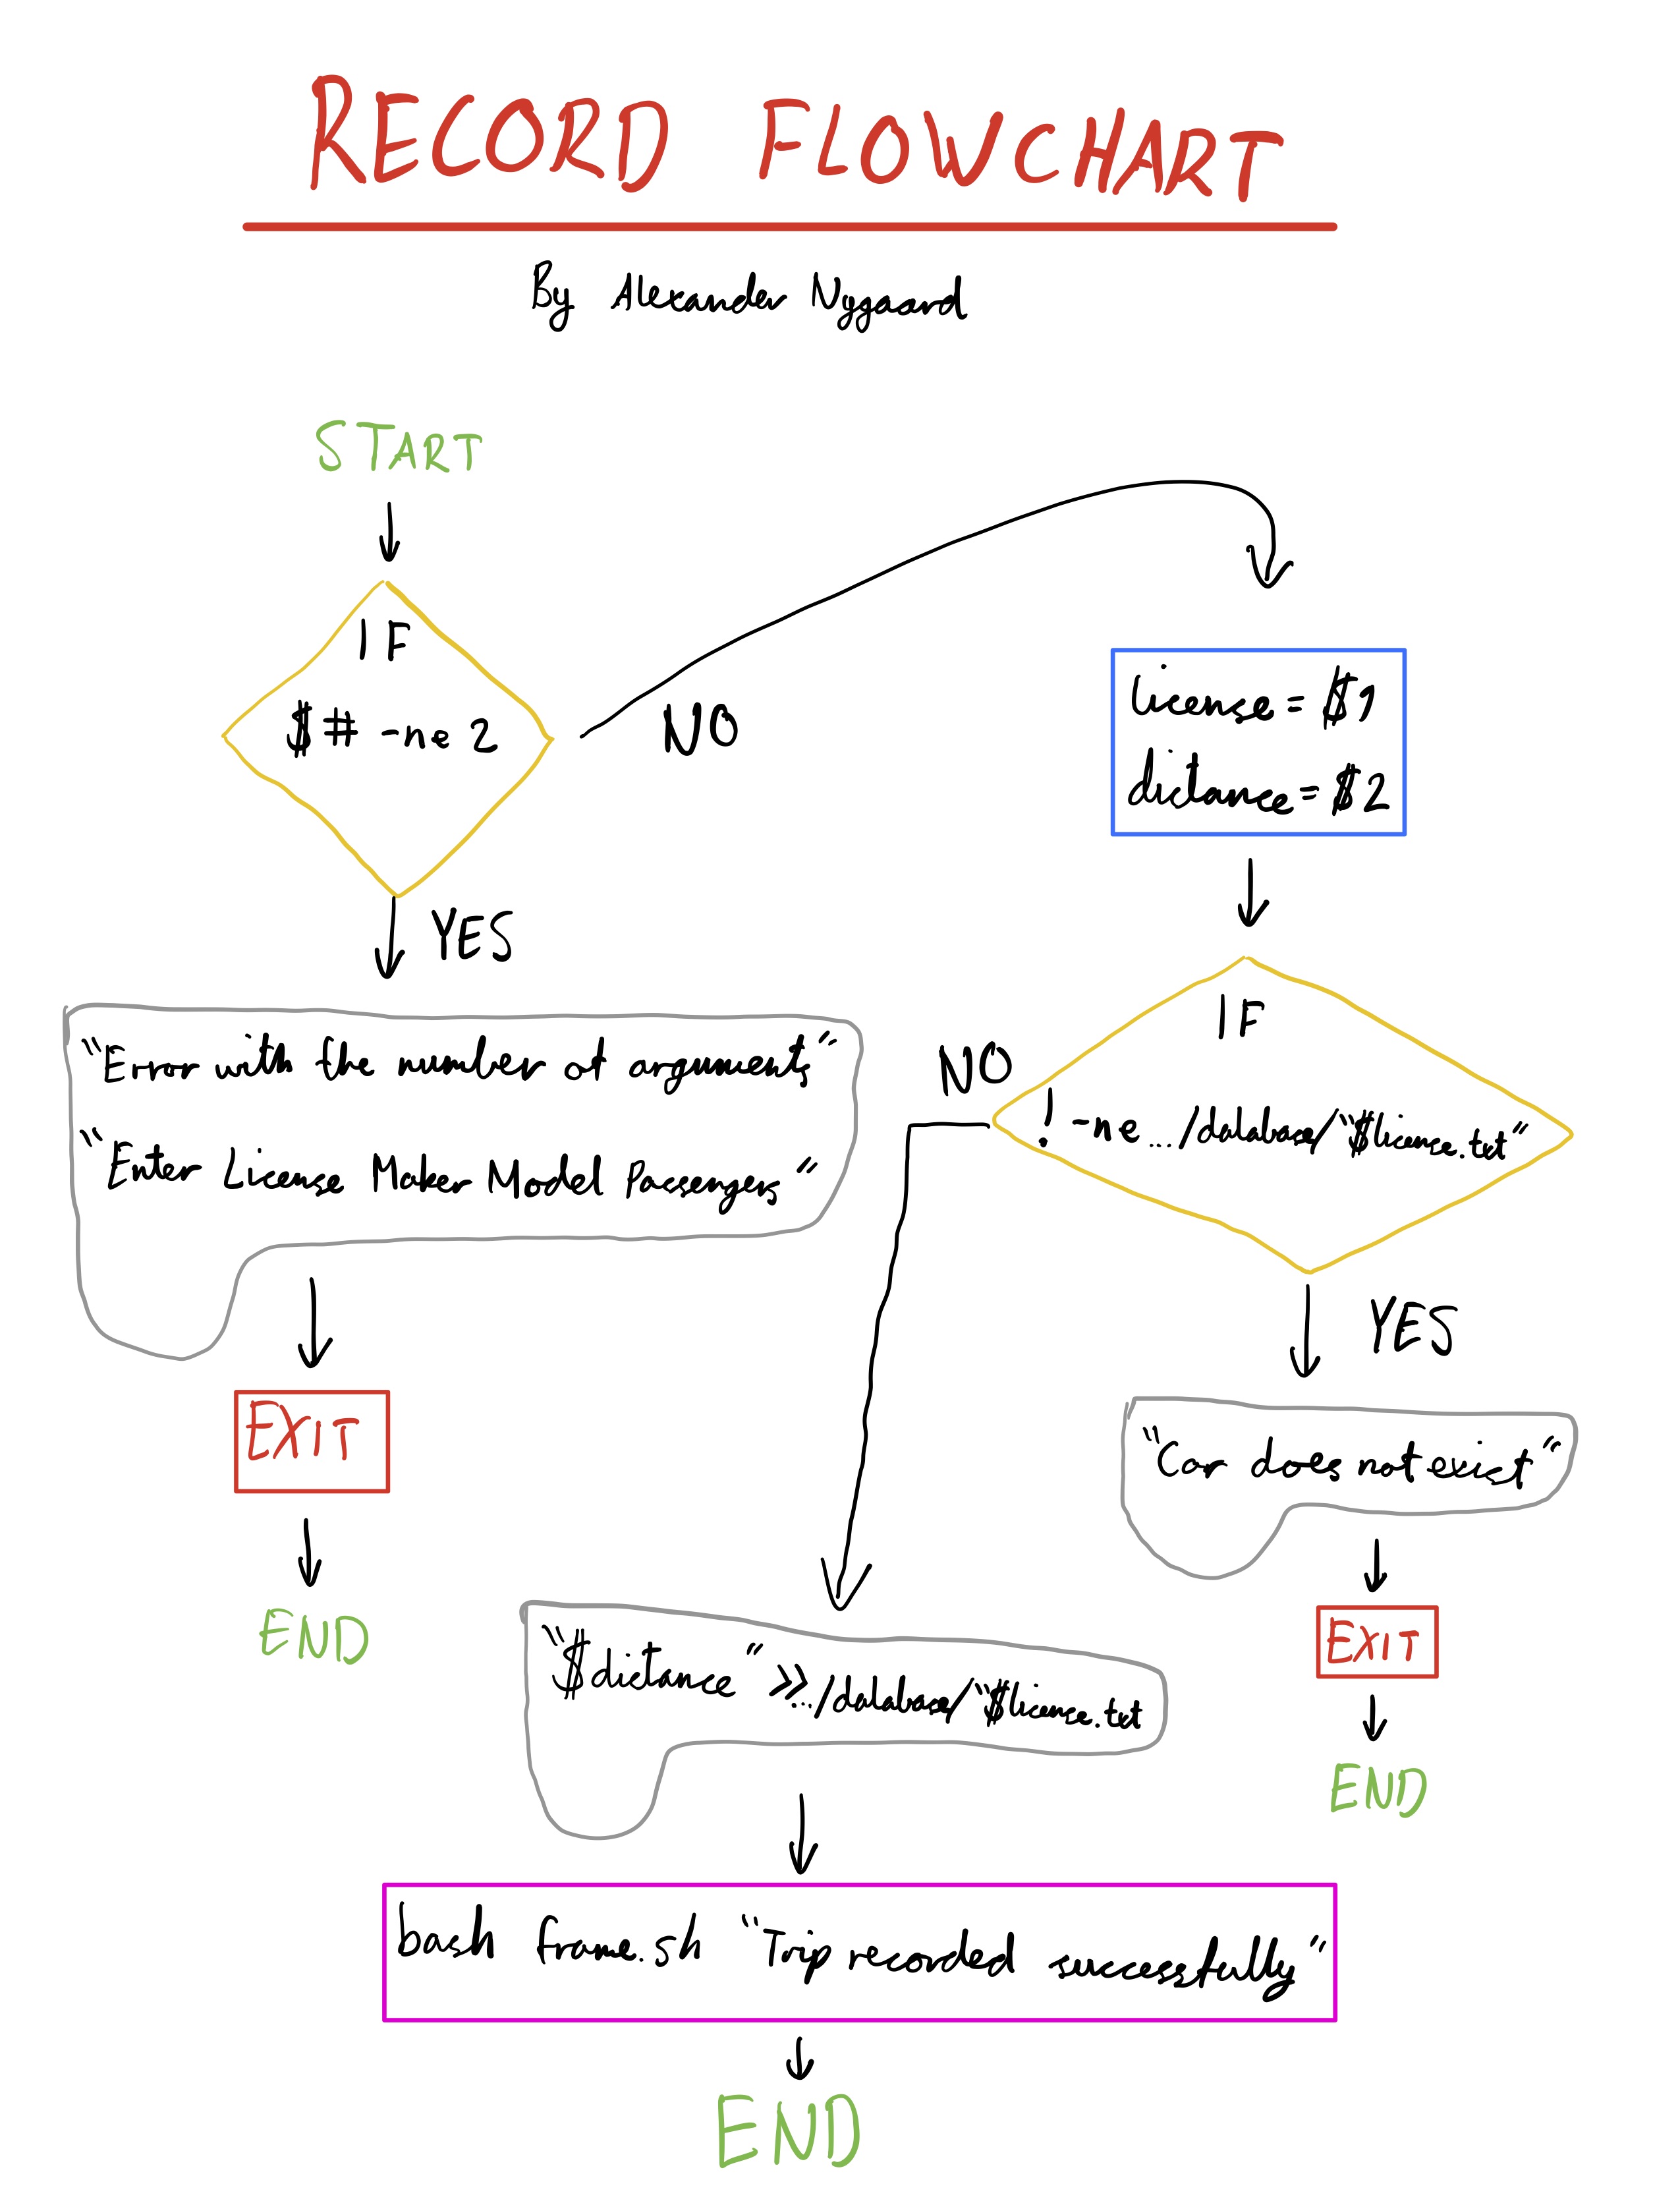 RECORD FLOWCHART
By Alexander Nygaard
START
IF
$# -ne 2
NO
YES
"Error with the number of arguments"
"Enter License Maker Model Passengers"
EXIT
END
license = $1
distance = $2
IF
! -ne .../database/"$license.txt"
NO
YES
"Car does not exist"
EXIT
END
"$distance" >> .../database/"$license.txt
bash frame.sh "Trip recorded successfully"
END